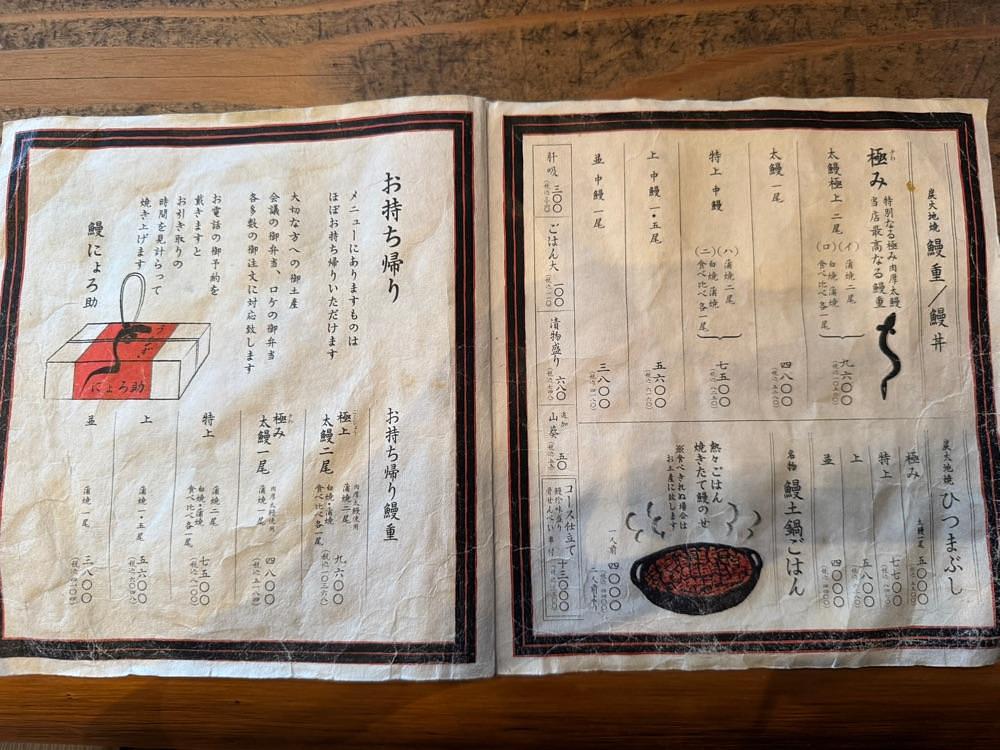 炭火地焼 鰻重／鰻丼
極み 特別なる極み肉厚太鰻
きわ
当店最高なる鰻重
太鰻極上 二尾 (イ) 蒲焼二尾
(ロ) 白焼、蒲焼
食べ比べ各一尾
九六〇〇
太鰻 一尾
四八〇〇
特上 中鰻
(ハ) 蒲焼二尾
(ニ) 白焼、蒲焼
食べ比べ各一尾
七五〇〇
上 中鰻 一・五尾
五六〇〇
並 中鰻 一尾
三八〇〇
炭火地焼 ひつまぶし
極み 太鰻一尾 五〇〇〇
特上 七七〇〇
上 五八〇〇
並 四〇〇〇
名物 鰻土鍋ごはん
熱々ごはん
焼きたて鰻のせ
※食べきれぬ場合は
お土産に致します
一人前 四〇〇〇
二人前より
肝吸 三〇〇
ごはん大 一〇〇
漬物盛り 六八〇
追加 山葵 五〇
コース仕立て
鰻珍味盛り
骨せんべい 事付
十三〇〇〇
お持ち帰り
メニューにありますものは
ほぼお持ち帰りいただけます
大切な方への御土産
会議の御弁当、ロケの御弁当
各多数の御注文に対応致します
お電話の御予約を
戴きますと
お引き取りの
時間を見計らって
焼き上げます
鰻 にょろ助
にょろ助
お持ち帰り鰻重
極上 肉厚太鰻使用
太鰻二尾 蒲焼二尾
白焼・蒲焼
食べ比べ各一尾
九六〇〇
極み
太鰻一尾 肉厚太鰻使用
蒲焼一尾
四八〇〇
特上 蒲焼二尾
白焼・蒲焼
食べ比べ各一尾
七五〇〇
上 蒲焼一・五尾
五六〇〇
並 蒲焼一尾
三八〇〇